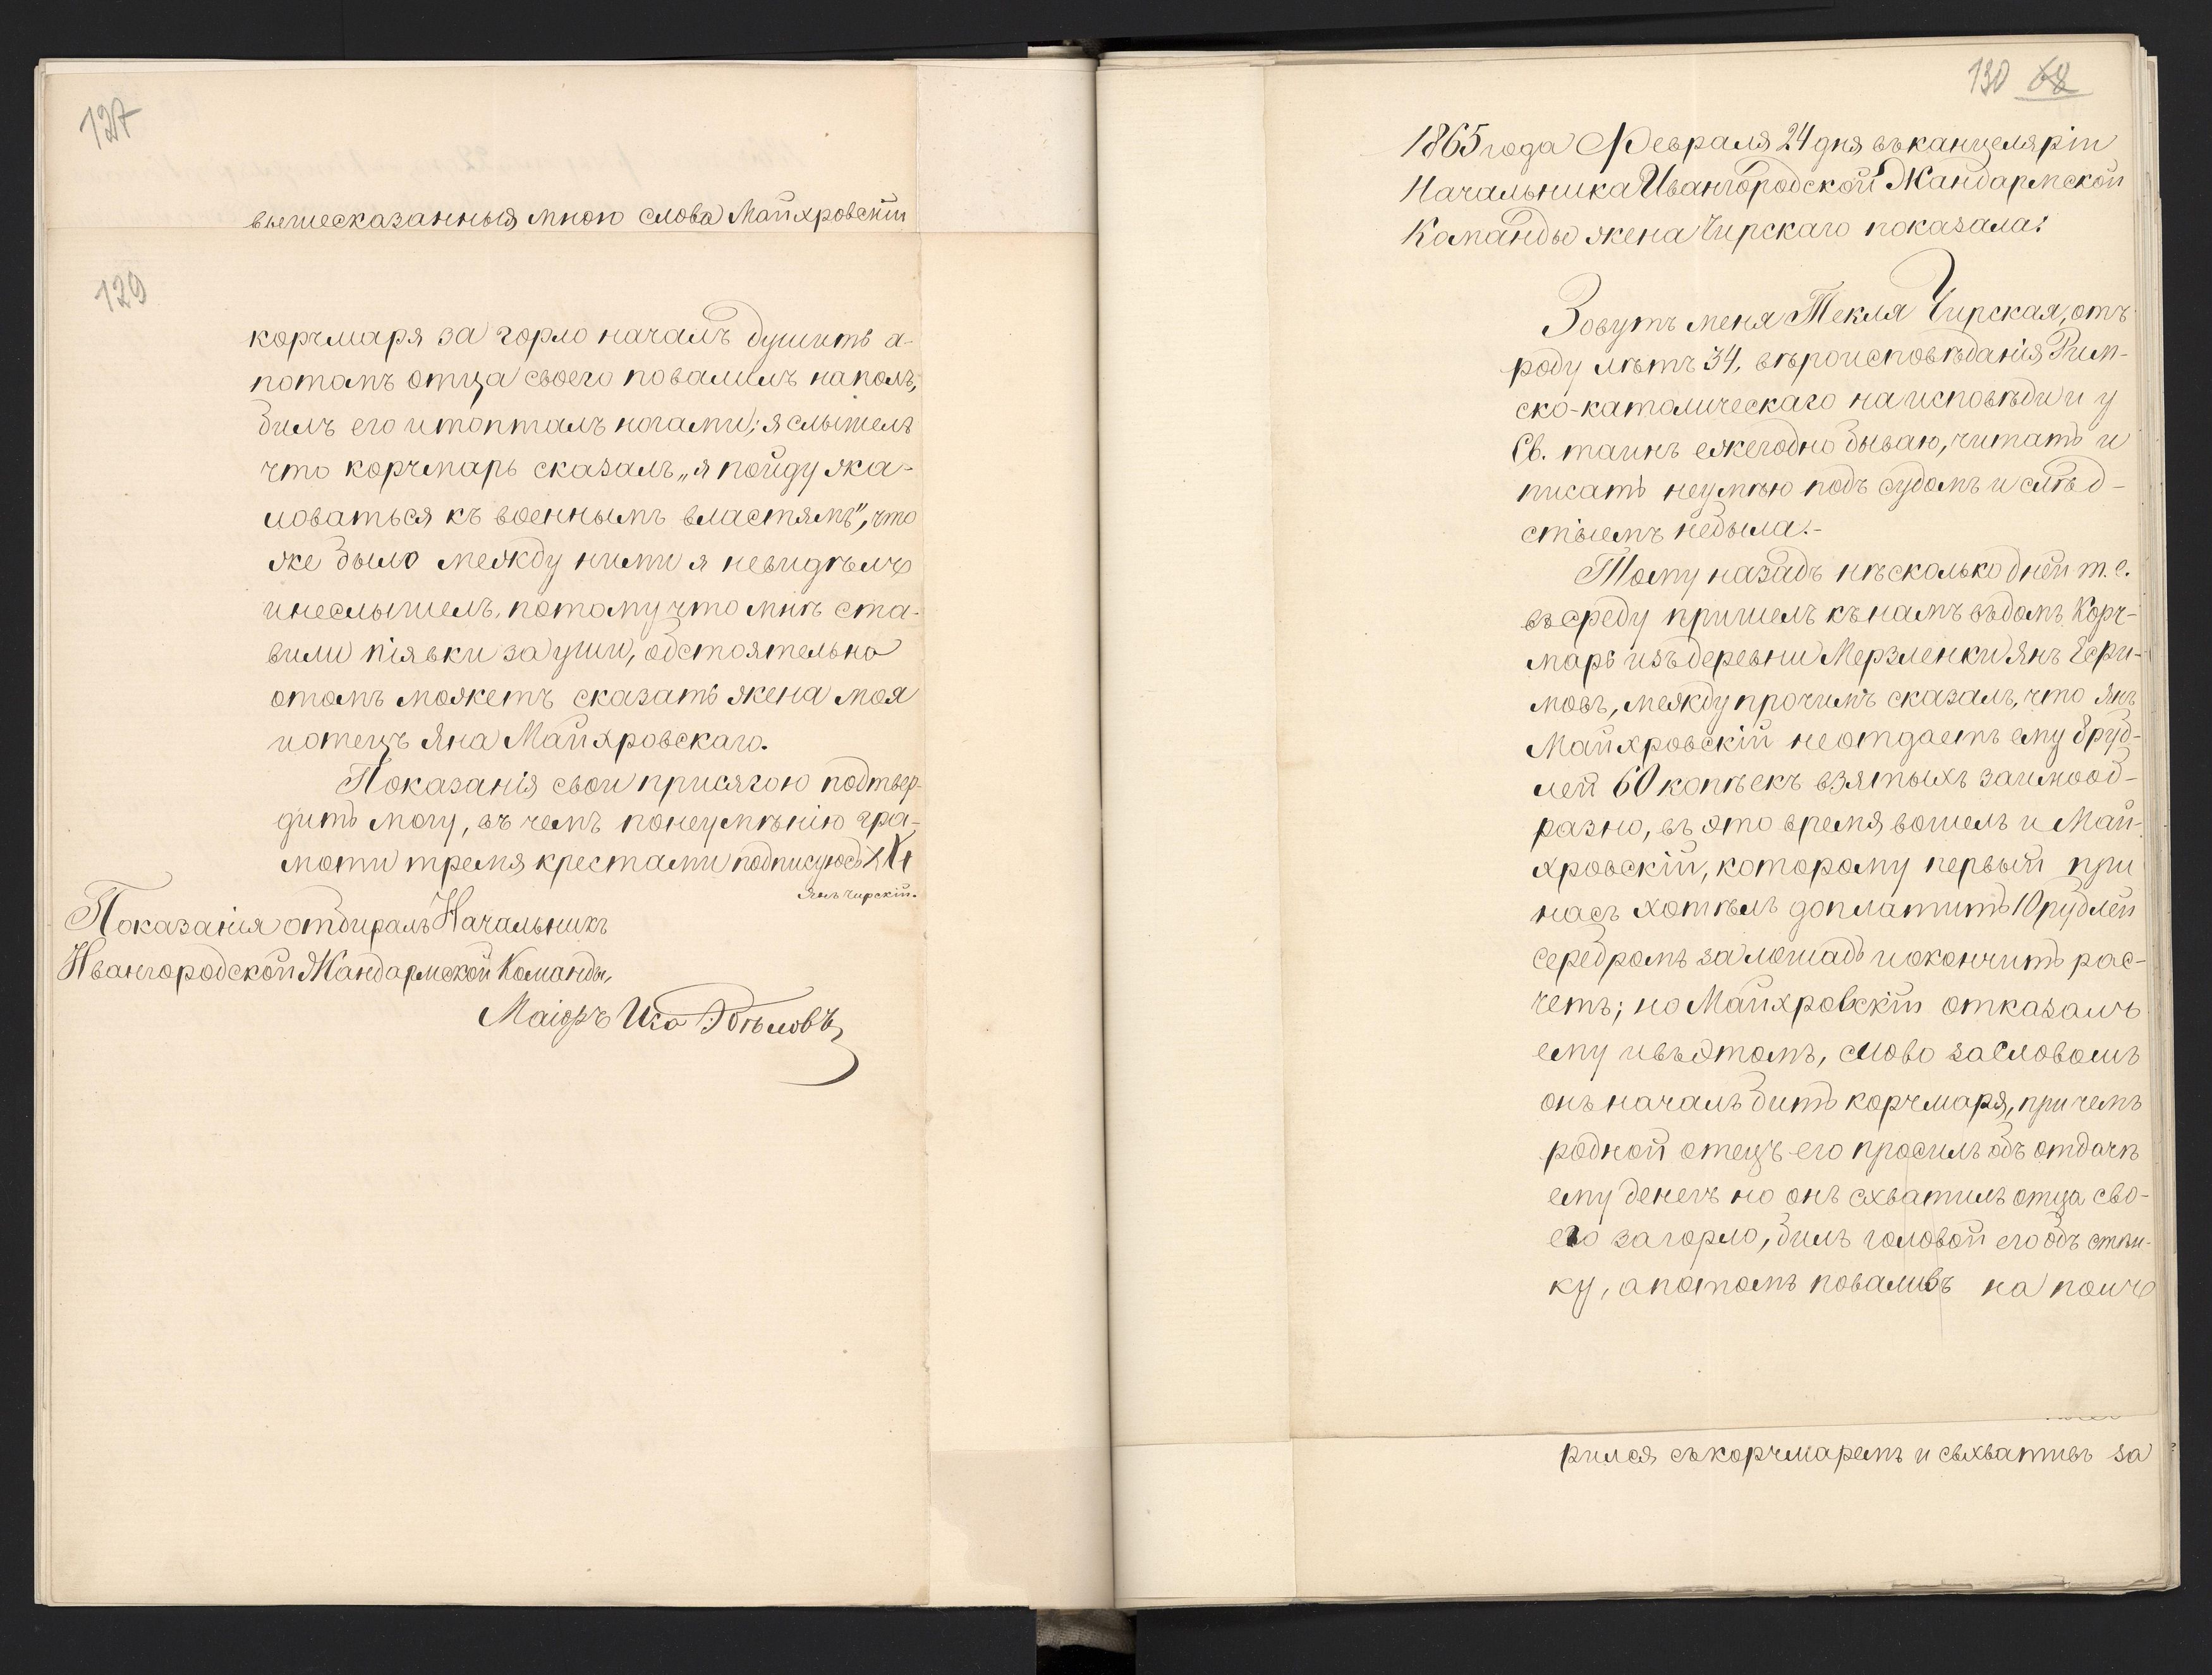 127
вышесказанныя мною слова Майхровскій
129
корчмаря за горло началъ душить а-
потомъ отца своего повалилъ на полъ,
билъ его и топталъ ногами; я слышелъ
что корчмарь сказалъ „я пойду жа-
ловаться къ военнымъ властямъ", что
же было между ними я невидѣлъ
и неслышелъ, потому что мнѣ ста-
вили піявки за уши, обстоятельно
отомъ можетъ сказать жена моя
и отецъ Яна Майхровскаго.
Показанія свои присягою подтвер-
дить могу, въ чемъ понеумѣнію гра-
моти тремя крестами подписуюсь XXX
Янъ Чирскій.
Показанія отбиралъ Начальникъ
Ивангородской Жандармской Команды,
Маіоръ
130 68
1865 года Февраля 24 дня въ канцеляріи
Начальника Ивангородской Жандармской
Команды жена Чирскаго показала:
Зовутъ меня Текля Чирская, отъ
роду лѣтъ 34, вѣроисповѣданія Рим-
ско-католическаго на исповѣди и у
Св. таинъ ежегодно бываю, читать и
писать неумѣю подъ судомъ и слѣд-
ствіемъ небыла.-
Тому назадъ нѣсколько дней т.е.
въ среду пришелъ къ намъ въ домъ Корч-
марь изъ деревни Мерзленки Янъ
мовъ, между прочимъ сказалъ, что Янъ
Майхровскій неотдаетъ ему 8 руб-
лей 60 копѣекъ взятыхъ заимооб-
разно, въ это время вошелъ и Май-
хровскій, которому первый при
насъ хотѣлъ доплатить 10 рублей
серебромъ за лошадь и окончить рас-
четъ; но Майхровскій отказалъ
ему и въ этомъ, слово за словомъ
онъ началъ бить корчмаря, при чемъ
родной отецъ его просилъ объ отдачѣ
ему денегъ но онъ схватилъ отца сво-
его за горло, билъ головой его объ стѣн-
ку, а потомъ поваливъ на полъ
рился съ корчмаремъ и схвативъ за